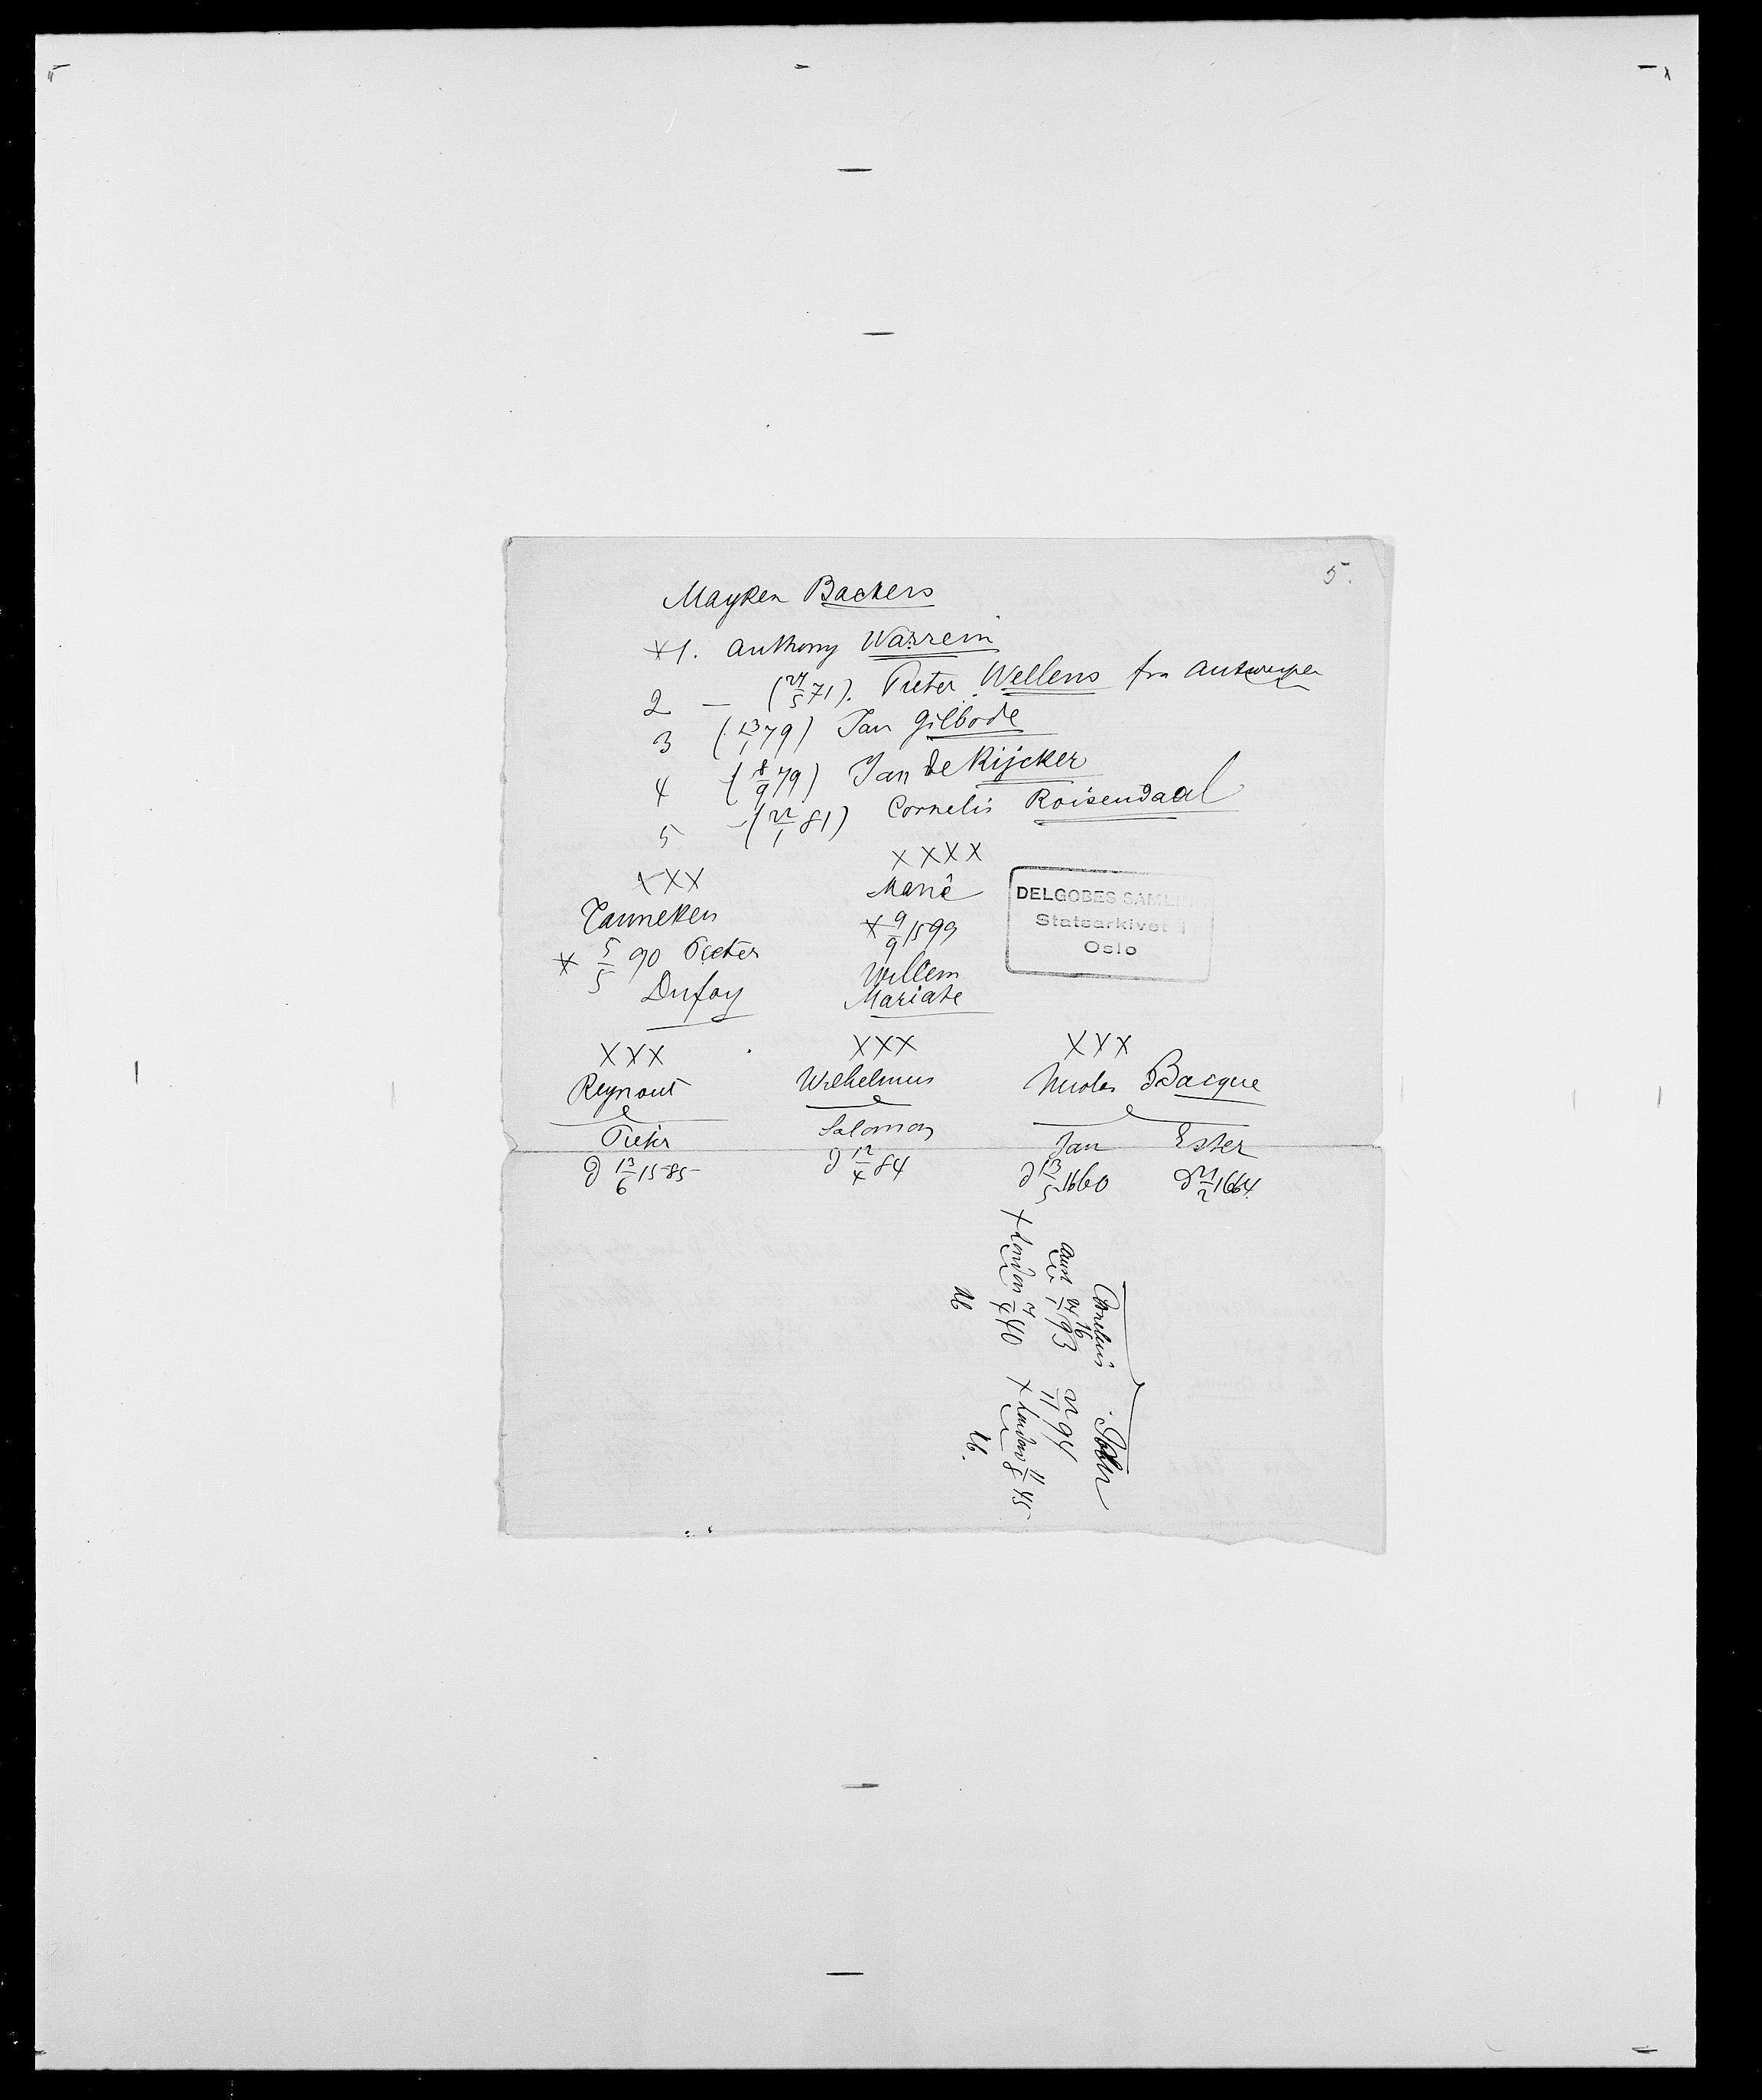 5.
Mayken Backers
x1. Anthony Warrein
2 — (27/5 71). Pieter Wellens fra Antwerpen
3 (13/1 79) Jan Gilbode
4 (8/9 79) Jan de Rijcker
5 - (22/1 81) Cornelis Roisendaal
XXX
Tanneken
x 5/5 90 Pieter
Dufoy
XXXX
Marie
x 9/9 1599
Willem
Mariate
DELGOBES SAMLI
Statsarkivet i
Oslo
XXX
Reynout
Pieter
d 13/6 1585
XXX
Wilhelmus
Salomon
d 12/4 84
XXX
Nicolas Bacque
Jan
d 13/5 1660
Ester
d 21/2 1664
Cornelius
16
27/1 93
x London 7/4 40
16
22/11 94
x London 11/8 45
16.